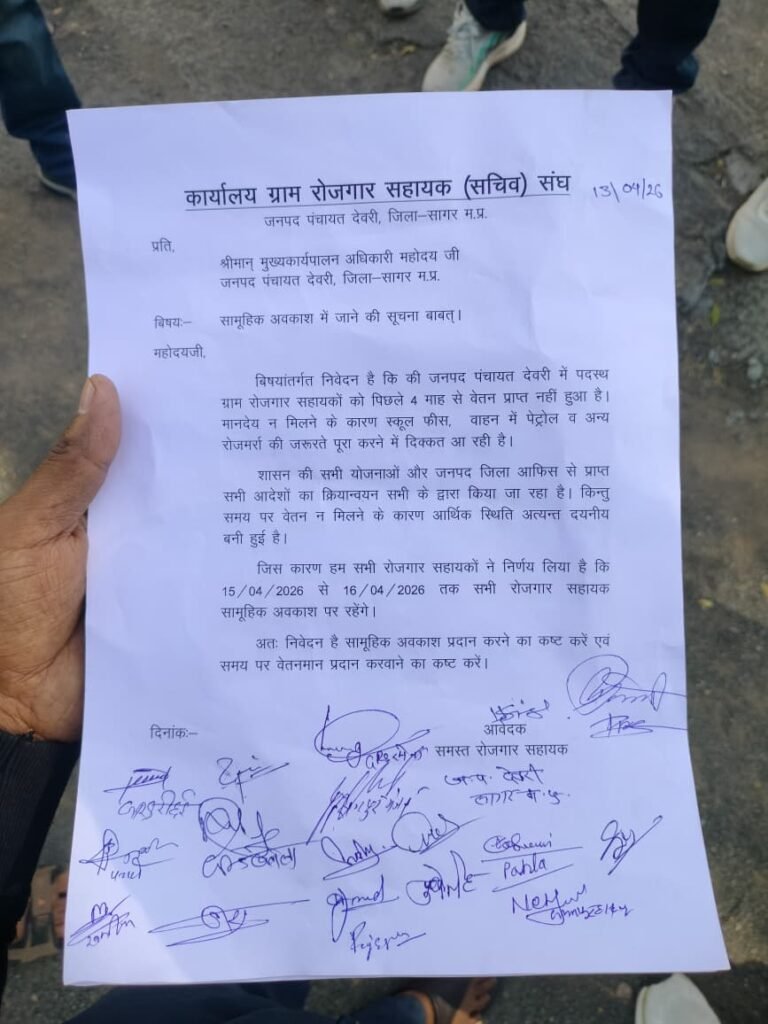 कार्यालय ग्राम रोजगार सहायक (सचिव) संघ
13/04/26
जनपद पंचायत देवरी, जिला–सागर म.प्र.
प्रति,
श्रीमान् मुख्यकार्यपालन अधिकारी महोदय जी
जनपद पंचायत देवरी, जिला–सागर म.प्र.
बिषयः– सामूहिक अवकाश में जाने की सूचना बाबत्।
महोदयजी,
बिषयांतर्गत निवेदन है कि की जनपद पंचायत देवरी में पदस्थ
ग्राम रोजगार सहायकों को पिछले 4 माह से वेतन प्राप्त नहीं हुआ है।
मानदेय न मिलने के कारण स्कूल फीस, वाहन में पेट्रोल व अन्य
रोजमर्रा की जरूरते पूरा करने में दिक्कत आ रही है।
शासन की सभी योजनाओं और जनपद जिला आफिस से प्राप्त
सभी आदेशों का क्रियान्वयन सभी के द्वारा किया जा रहा है। किन्तु
समय पर वेतन न मिलने के कारण आर्थिक स्थिति अत्यन्त दयनीय
बनी हुई है।
जिस कारण हम सभी रोजगार सहायकों ने निर्णय लिया है कि
15/04/2026 से 16/04/2026 तक सभी रोजगार सहायक
सामूहिक अवकाश पर रहेंगे।
अतः निवेदन है सामूहिक अवकाश प्रदान करने का कष्ट करें एवं
समय पर वेतनमान प्रदान करवाने का कष्ट करें।
दिनांकः–
आवेदक
समस्त रोजगार सहायक
ज.प. देवरी
सागर म.प्र.